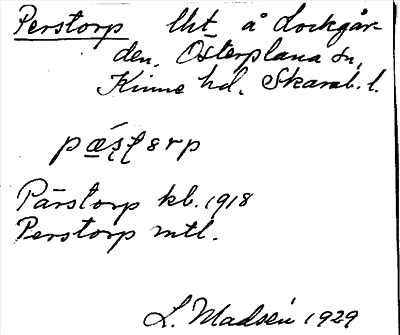 Perstorp lht å Lockgår-
den, Österplana sn,
Kinne hd, Skarab. l.
pǽʂʈɵrp
Pärstorp kb. 1918
Perstorp mtl.
L. Madsén 1929